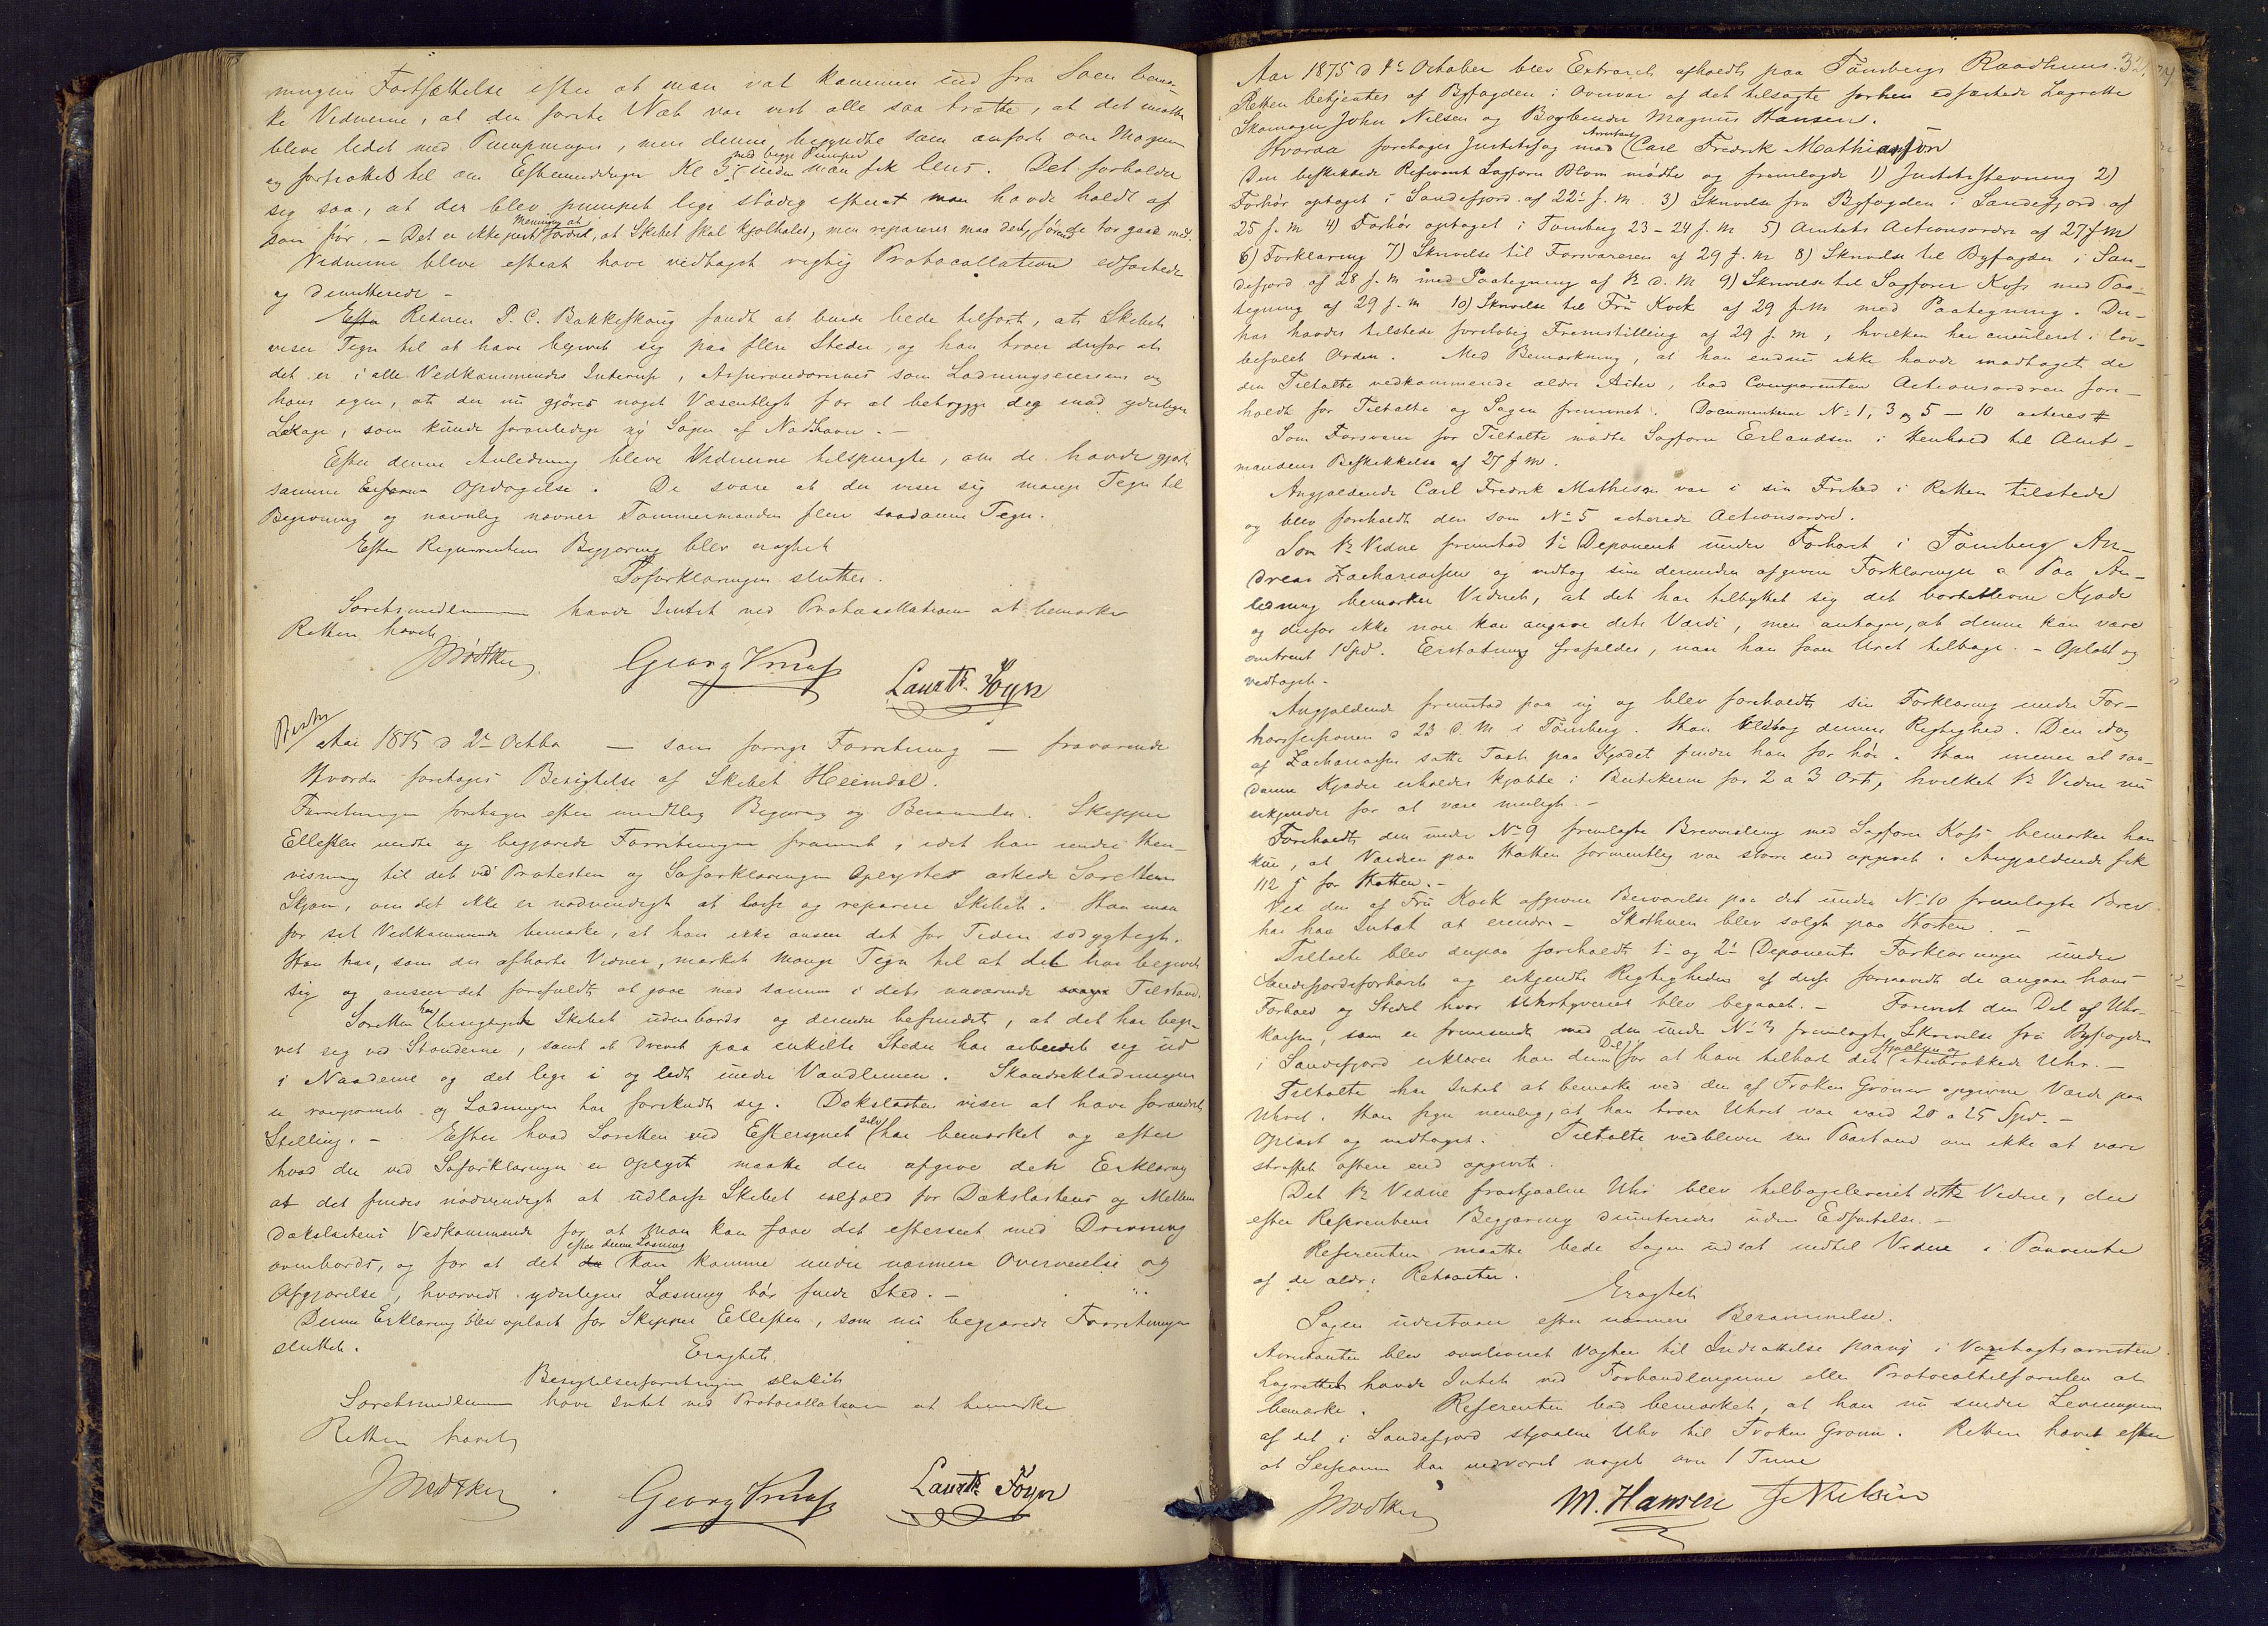 mugens Fortsættelse efter at man var kommen ind fra Søen bemær-
ke Vidnerne, at den første Nat var vist alle saa trætte, at det maatte
bleve ledet med Pumpningen, men denne begyndte som anført om Morgenen
og fortsattes til om Eftermiddagen Kl 3 med begge Pumper inden man fik lens. Det forholder
sig saa, at der blev pumpet lige stadig efterat man havde holdt af
som før. - Det er ikke just Meningen at fordre, at Skibet skal kjølhales, men repareres maa det, førend de tør gaae med.
Vidnerne bleve efterat have vedtaget rigtig Protocollation edfæstede
og dimitterede -
Rederen P. C. Bakkeskoug fandt at burde bede tilført, at Skibet
viser Tegn til at have begivet sig paa flere Steder, og han troer derfor at
det er i alle Vedkommendes Interesse, Assurandørernes som Ladningseierens og
hans egen, at der nu gjøres noget Væsentligt for at betrygge sig mod yderligere
Lækage, som kunde foranledige ny Søgen af Nødhavn. -
Efter denne Anledning bleve Vidnerne tilspurgte, om de havde gjort
samme Opdagelse. De svare at der viser sig mange Tegn til
Begivning og navnlig nævner Tømmermanden flere saadanne Tegn.
Efter Requirentens Begjæring blev eragtet
Søforklaringen sluttes.
Søretsmedlemmerne havde Intet ved Protocollationen at bemærke
Retten hævet
JBødtker Georg Kruse Lauritz Foyn
Aar 1875 d 2 Octbr — som forrige Forretning — fraværende
Hvorda foretages Besigtelse af Skibet Heimdal.
Forretningen foretages efter mundtlig Begjæring og Berammelse. Skipper
Ellefsen mødte og begjærede Forretningen fremmet, idet han under Hen-
visning til det ved Protesten og Søforklaringen Oplyste æskede Sørettens
Skjøn, om det ikke er nødvendigt at losse og reparere Skibet. Han maa
for sit Vedkommende bemærke, at han ikke anseer det for Tiden sødygtigt.
Han har, som de afhørte Vidner, mærket mange Tegn til at det har begivet
sig og anseer det farefuldt at gaae med samme i dets nuværende Tilstand.
Søretten har besigtiget Skibet udenbords og derunder befundet, at det har begi-
vet sig ved Standerne, samt at Drevet paa enkelte Steder har arbeidet sig ud
i Naaderne og det lige i og lidt under Vandlinien. Skandeklædningen
er ramponeret og Ladningen har forskudt sig. Dækslasten viser at have forandret
Stilling. - Efter hvad Søretten ved Eftersynet selv har bemærket og efter
hvad der ved Søforklaringen er oplyst maatte den afgive det Erklæring
at det findes nødvendigt at udlosse Skibet ialfald for Dækslastens og Mellem
dækslastens Vedkommende for at man kan faae det efterseet med Drivning
ovenbords, og for at det efter denne Losning kan komme under nærmere Overveielse og
Afgjørelse, hvorvidt yderligere Losning bør finde Sted. -
Denne Erklæring blev oplæst for Skipper Ellefsen, som nu begjærede Forretningen
sluttet.
Eragtet
Besigtelsesforretningen sluttet
Søretsmedlemmerne have Intet ved Protocollationen at bemærke
Retten hævet
JBødtker Georg Kruse Lauritz Foyn
Aar 1875 d 1 October blev Extraret afholdt paa Tønsbergs Raadhuus.
Retten betjentes af Byfogden i Overvær af det tilsagte forhen edfæstede Lagrette
Skomager John Nilsen og Bogbinder Magnus Hansen.
Hvorda foretages Justitssag mod Arrestant Carl Fredrik Mathiassen
Den beskikkede Referent Sagfører Blom mødte og fremlagde 1) Justitsstevning 2)
Forhør optaget i Sandefjord af 22 f. m. 3) Skrivelse fra Byfogden i Sandefjord af
25 f. m 4) Forhør optaget i Tønsberg 23-24 f. m 5) Amtets Actionsordre af 27 f m
6) Forklaring 7) Skrivelse til Forsvareren af 29 f. m 8) Skrivelse til Byfogden i San-
defjord af 28 f. m med Paategning af 1 d. M 9) Skrivelse til Sagfører Koss med Paa-
tegning af 29 f. m 10) Skrivelse til Fru Kock af 29 f m med Paategning. Der-
hos havdes tilstede foreløbig Fremstilling af 29 f. m, hvilken har circuleret i lov-
befalet Orden. Med Bemærkning, at han endnu ikke havde modtaget de
den Tiltalte vedkommende ældre Acter, bad Comparenten Actionsordren fore-
holdt for Tiltalte og Sagen fremmet. Documenterne No 1, 3 og 5-10 acteres
Som Forsvarer for Tiltalte mødte Sagfører Erlandsen i Henhold til Amt-
mandens Beskikkelse af 27 f m.
Angjældende Carl Fredrik Mathisen var i sin Frihed i Retten tilstede
og blev foreholdt den som No 5 acterede Actionsordre.
Som 1 Vidne fremstod 1 Deponent under Forhøret i Tønsberg An-
dreas Zachariassen og vedtog sine derunder afgivne Forklaringer. Paa An-
ledning bemærker Vidnet, at det har tilbyttet sig det bortstjaalne Kjæde
og derfor ikke nøie kan angive dets Værdi, men antager, at denne kan være
omtrent 1 Spd. Erstatning frafaldes, naar han faaer Uret tilbage. - Oplæst og
vedtaget.
Angjældende fremstod paa ny og blev foreholdt sin Forklaring under For-
hørssessionen d 23 d. M i Tønsberg. Han vedtog dennes Rigtighed. Den idag
af Zachariassen satte Taxt paa Kjædet finder han for høi. Han mener at saa-
danne Kjæder erholdes kjøbte i Butikerne for 2 a 3 Ort, hvilket 1 Vidne nu
erkjender for at være muligt. -
Foreholdt den under No 9 fremlagte Brevvexling med Sagfører Koss bemærker han
kun, at Værdien paa Hatten formentlig var større end opgivet. Angjældende fik
112 ß for Hatten. -
Ved den af Fru Kock afgivne Besvarelse paa det under No 10 fremlagte Brev
har han Intet at erindre - Skothuen blev solgt paa Horten. -
Tiltalte blev derpaa foreholdt 1 og 2 Deponents Forklaringer under
Sandefjordsforhøret og erkjendte Rigtigheden af disse forsaavidt de angaae hans
Forhold og Stedet hvor Uhrtyveriet blev begaaet. - Forevist den Del af Uhr-
kassen, som er fremsendt med den under No 3 fremlagte Skrivelse fra Byfogden
i Sandefjord erklærer han denne Del for at have tilhørt det stjaalne og itubrækkede Uhr. -
Tiltalte har Intet at bemærke ved den af Frøken Grønn opgivne Værdi paa
Uhret. Han siger nemlig, at han troer Uhret var værd 20 a 25 Spd. -
Oplæst og vedtaget. Tiltalte vedbliver sin Paastand om ikke at være
straffet oftere end opgivet.
Det 1 Vidne frastjaalne Uhr blev tilbageleveret dette Vidne, der
efter Referentens Begjæring dimitteredes uden Edfæstelse. -
Referenten maatte bede Sagen udsat indtil Videre i Paavente
af de ældre Retsacter.
Eragtet
Sagen udestaaer efter nærmere Berammelse.
Arrestanten blev overleveret Vagten til Indsættelse paany i Varetægtsarresten.
Lagrettet havde Intet ved Forhandlingerne eller Protocoltilførslen at
bemærke. Referenten bad bemærket, at han nu sender Levningerne
af det i Sandefjord stjaalne Uhr til Frøken Grønn. Retten hævet efter
at Sessionen har vedvaret noget over 1 Time
JBødtker M. Hansen J Nielsen